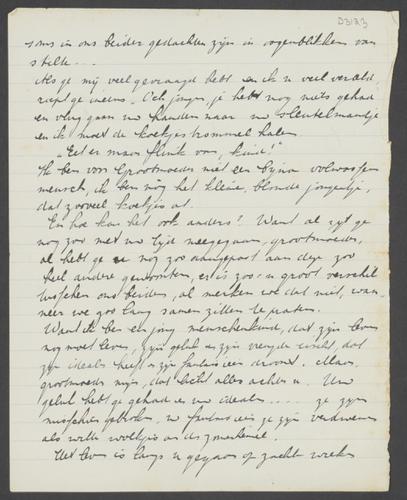 D3183
soms in ons beider gedachten zijn in oogenblikken van
stilte....
Als ge mij veel gevraagd hebt en ik u veel verteld,
roept ge ineens „Och jongen, je hebt nog niets gehad
en vlug gaan uw handen naar uw sleutelmandje
en ik moet de koekjestrommel halen.
„Eet er maar flink van, kind!"
Ik ben voor Grootmoeder niet een bijna volwassen
mensch, ik ben nog het kleine, blonde jongetje,
dat zooveel koekjes at.
En hoe kan het ook anders? Want al zijt ge
nog zoo met uw tijd meegegaan, grootmoeder,
al hebt ge u nog zoo aangepast aan deze zoo
heel andere gewoonten, er is zoo'n groot verschil
tusschen ons beiden, al merken we dat niet, wan-
neer we zoo lang samen zitten te praten.
Want ik ben een jong menschenkind, dat zijn leven
nog moet leven, zijn geluk en zijn vreugde zoekt, dat
zijn idealen heeft en zijn fantasieën droomt. Maar,
grootmoeder mijn, dat ligt alles achter u. Uw
geluk hebt ge gehad en uw idealen..... ze zijn
misschien gebroken, uw fantasieën ze zijn verdwenen
als witte wolkjes aan de zomerhemel.
Het leven is langs u gegaan op zachte